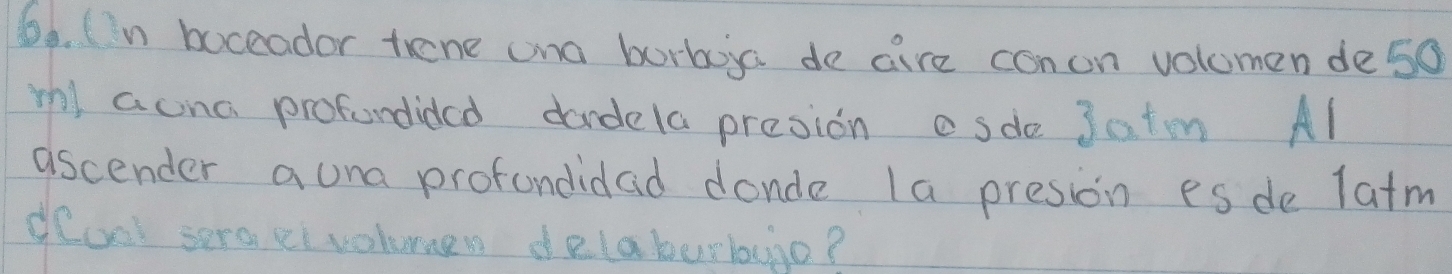 6. Un buceador tiene una burbuja de aire con un volumen de 50
ml a una profundidad donde la presión es de 3atm Al
ascender a una profundidad donde la presión es de 1atm
¿Cual sera el volumen de la burbuja?